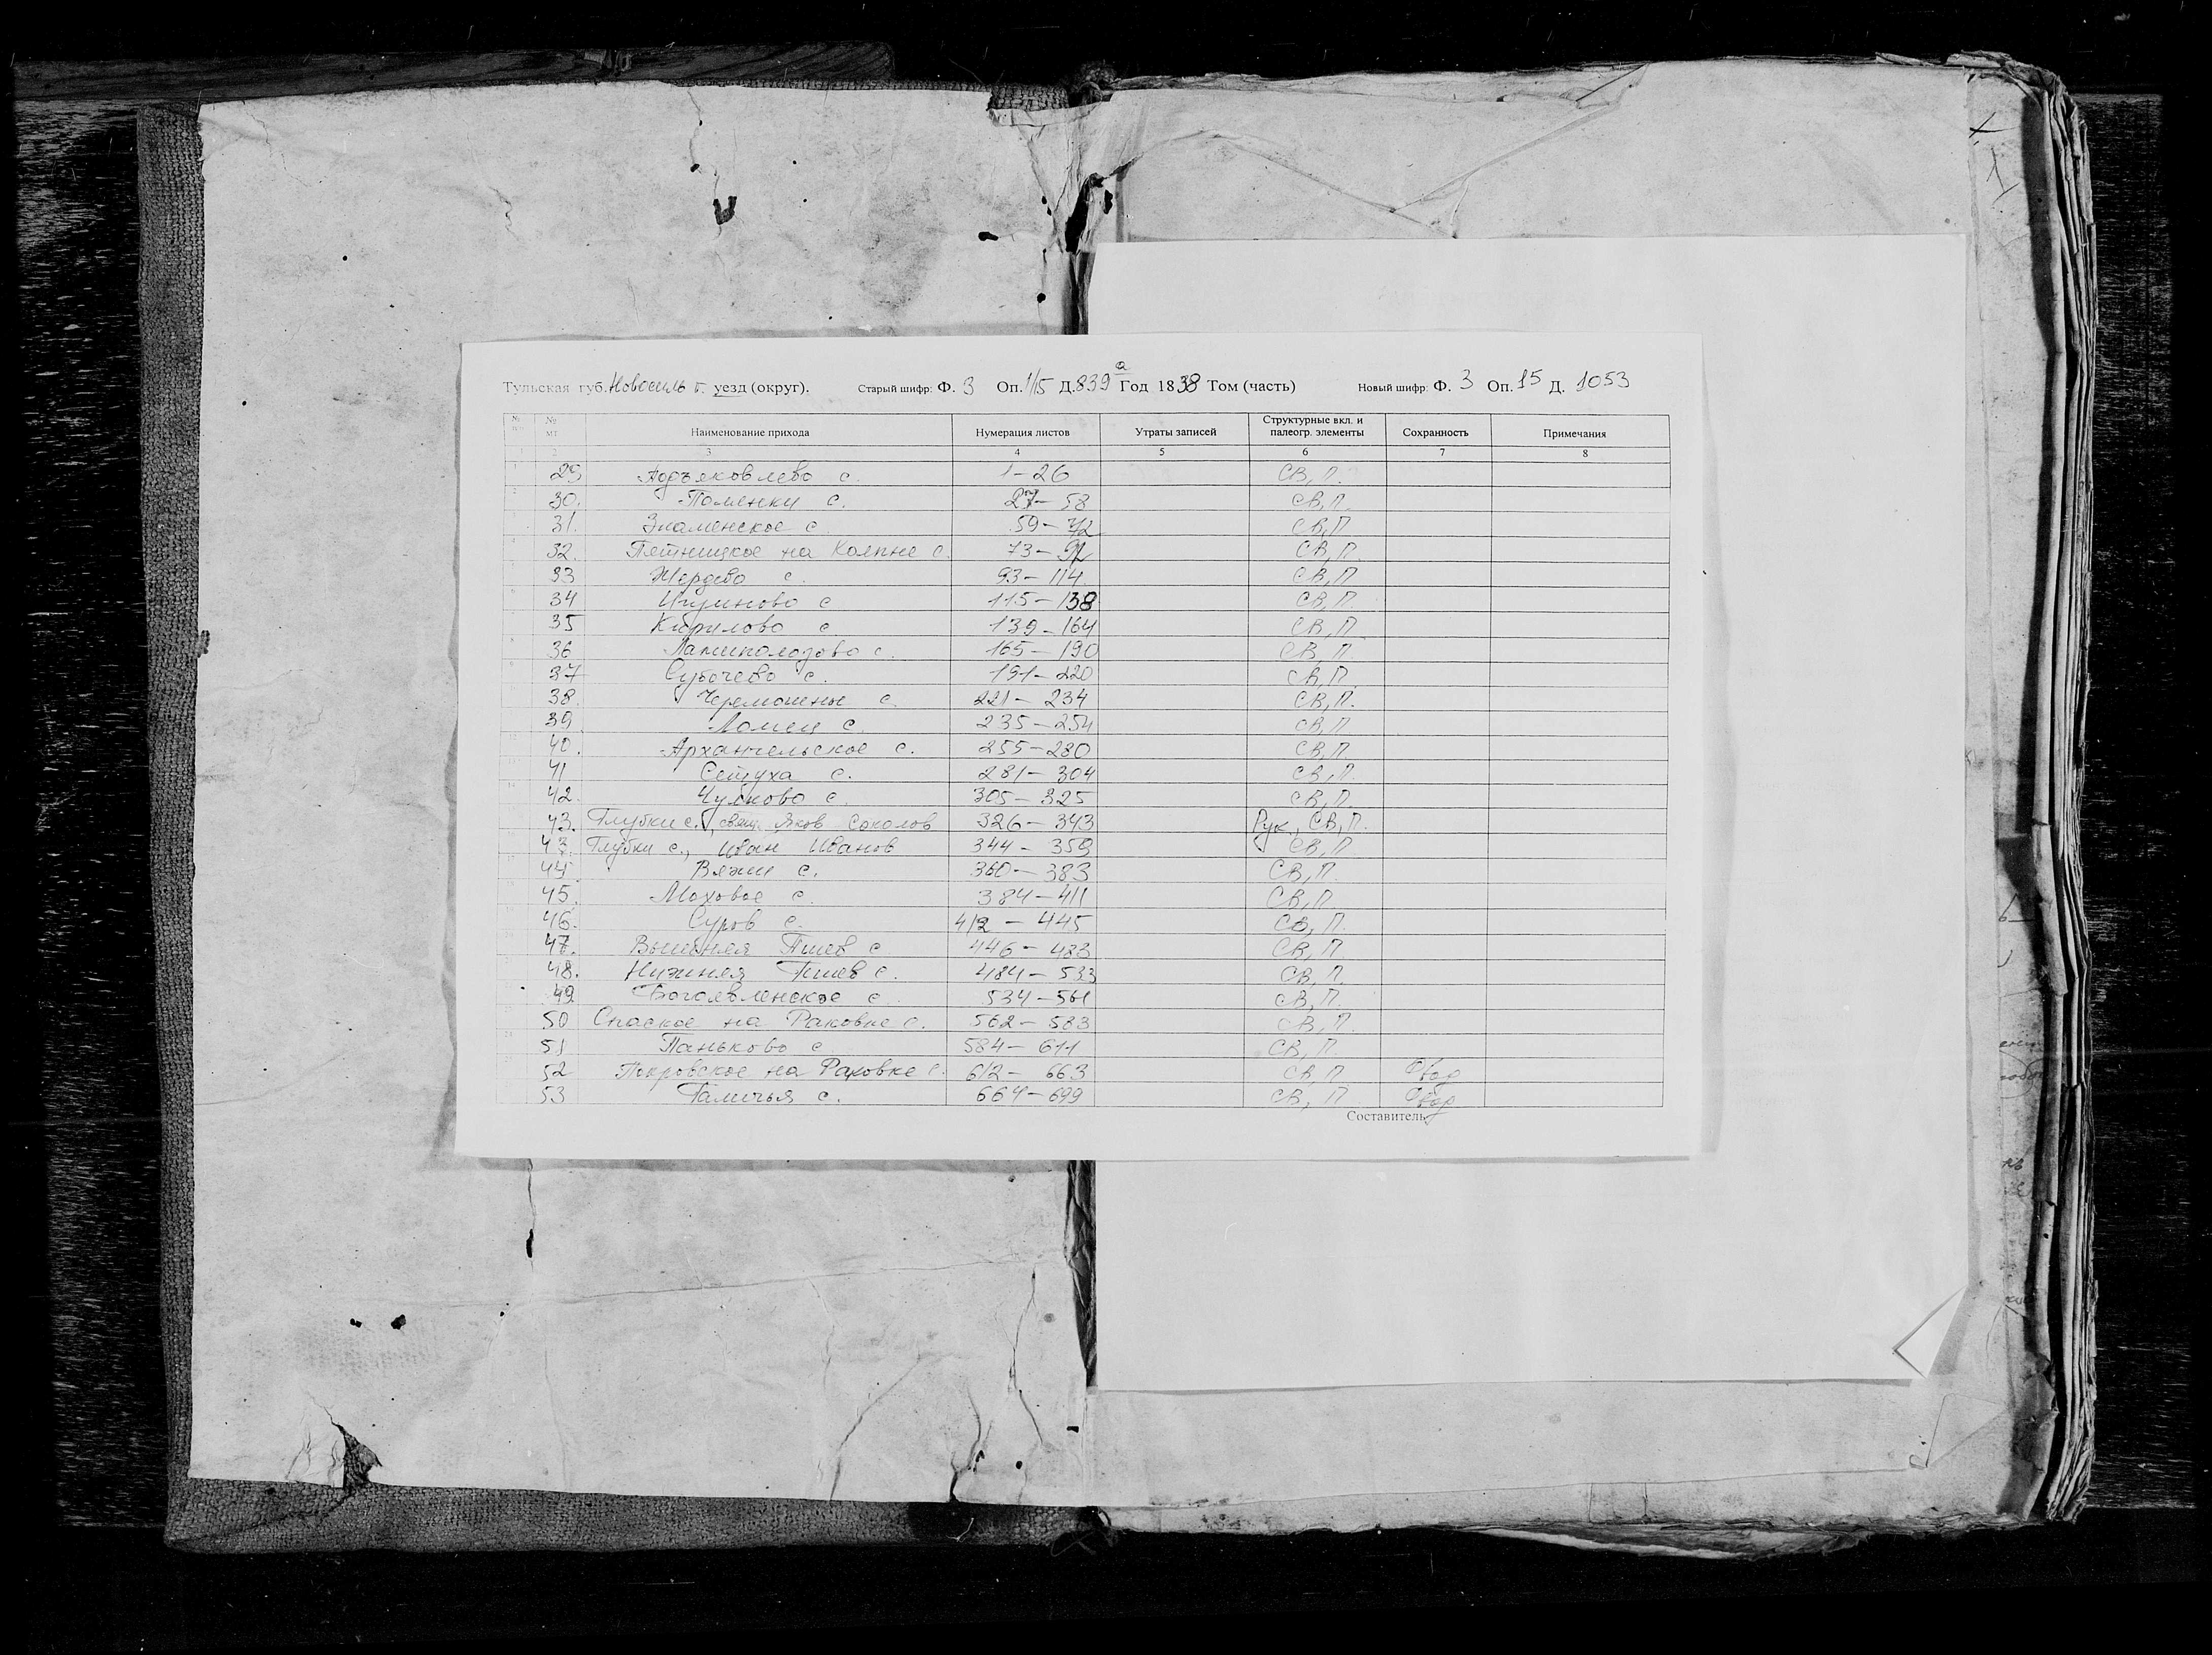 Тульская губ. Новосиль г. уезд (округ). Старый шифр: Ф. 3 Оп. 1/15 Д. 839 а Год 1838 Том (часть) Новый шифр: Ф. 3 Оп. 15 Д. 1053
№ № мт Наименование прихода Нумерация листов Утраты записей Структурные вкл. и палеогр. элементы Сохранность Примечания
1 2 3 4 5 6 7 8
29 Подъяковлево с. 1-26 СВ, П.
30. Поменки с. 27-58 СВ, П.
31. Знаменское с. 59-72 СВ, П
32. Пятницкое на Колпне с. 73-92 СВ, П.
33 Жердево с. 93-114. СВ, П
34 Игумново с 115-138 СВ, П.
35 Кирилово с 139-164 СВ, П
36 с. 165-190 СВ, П
37 Субочево с. 191-220 СВ, П.
38. Черемошены с. 221-234 СВ, П.
39 Ломец с. 235-254 СВ, П
40. Архангельское с. 255-280 СВ, П
41 Сетуха с. 281-304 СВ, П.
42. Чулково с. 305-325 СВ, П.
43. Глубки с., свящ. Яков Соколов 326-343 Рук., СВ, П.
43. Глубки с., Иван Иванов 344-359 СВ, П
44 Вяжи с. 360-383 СВ, П.
45. Моховое с. 384-411 СВ, П
46. Суров с. 412-445 СВ, П.
47. Вышняя Пшев с 446-483 СВ, П
48. Нижняя Пшев с. 484-533 СВ, П.
49 Богоявленское с 534-561 СВ, П.
50 Спаское на Раковке с. 562-583 СВ, П.
51 Паньково с 584-611 СВ, П.
52 Покровское на Раковке с. 612-663 СВ, П
53 Галичья с. 664-699 СВ, П
Составитель